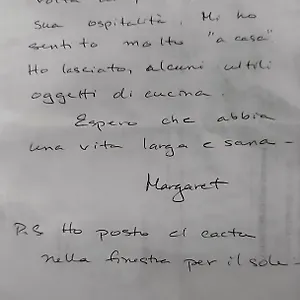 sua ospitalità. Mi ho
sentito molto "a casa"
Ho lasciato, alcuni ultili
oggetti di cucina.
Espero che abbia
una vita larga e sana -
Margaret
P.S Ho posto el cactu
nella finestra per il sole -